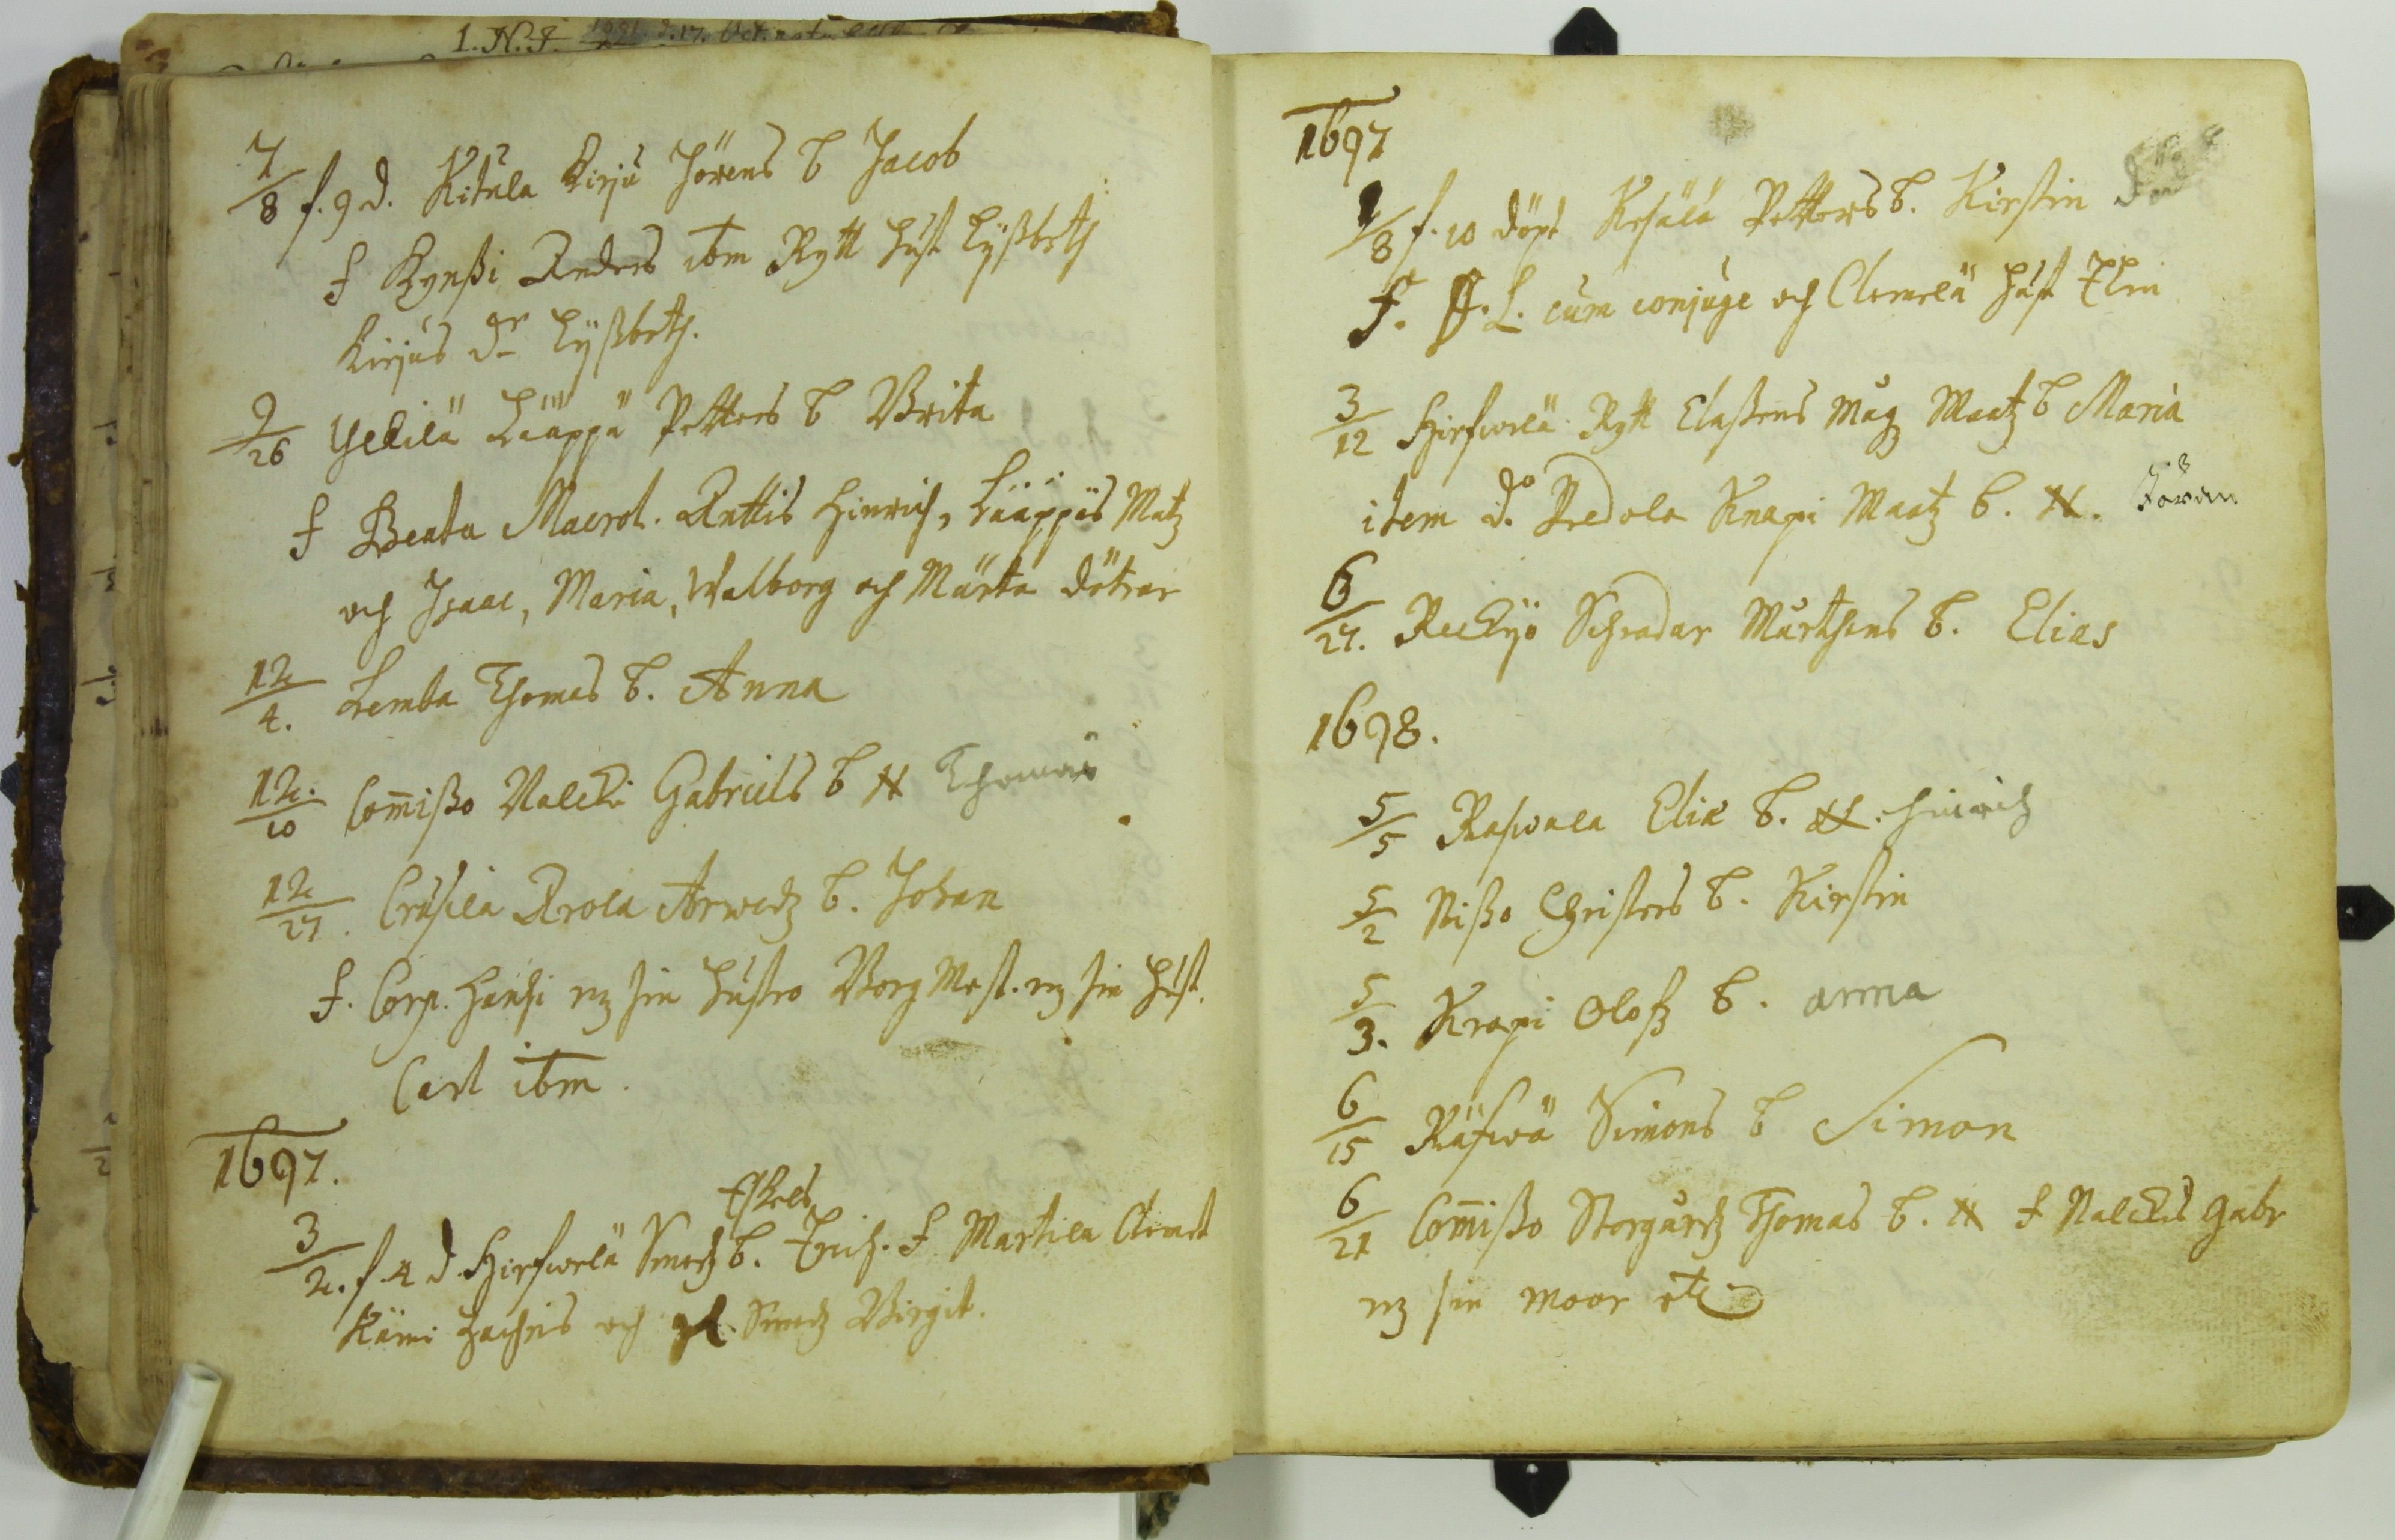 1. N. I.
7/8 f. 9 d. Kitula Kirju Jörens b Jacob
f Kynßi Anders ibm Rytt hust Lyßbeth
Kirjus dr Lyßbeth.
9/26 Yekilä Lääppä Petters b Brita
f Beata Macrol. Anttis Hinrich, Lääppäs Matz
och Isaac, Maria, Walborg och Märta dötrar
12/4. Lemba Thomas b. Anna
12./10 Com̄ißo Nalcki Gabriels b N Thomas
12/27. Crusila Arola Arwedz b. Johan
f. Corp. Hansi mz sin hustro Borg Mest. mz sin hust.
Carl ibm.
1697.
Eskels
3/2. f. 4 d. Hirfwelä Smedz b. Erich. f Martila Clemet
Kämi Zachris och gl. Smedz Birgit.
1697
1/8 f. 10 döpt Kesälä Petters b. Kirstin
F. H. L. cum conjuge och Clemelä hust Elin
3/12 Hirfwelä Rytt Claßens Måg Maatz b Maria
item do Predola Knapi Maatz b. N. Jören
6/27. Reckyö Schradar Mårthens b. Elias
1698.
5/5 Raswala Eliæ b. N. Hinrich
5/2 Nißo Christers b. Kirstin
5/3. Krapi Olofz b. anna
6/15 Räfwä Simons b Simon
6/21 Com̄ißo Storgårdz Thomas b. N f Nalckis Gabr
mz sin moor etc